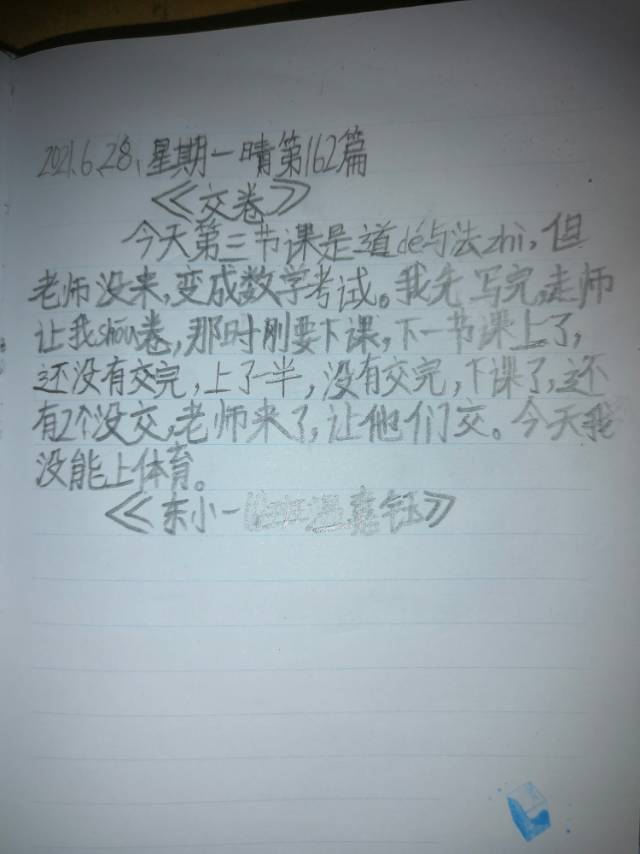 2021.6.28、星期一晴第162篇
《交卷》
今天第三节课是道dé与法zhì,但
老师没来,变成数字考试。我先写完,老师
让我shōu卷,那时刚要下课,下一节课上了,
还没有交完,上了一半,没有交完,下课了,还
有2个没交,老师来了,让他们交。今天我
没能上体育。
《东小一